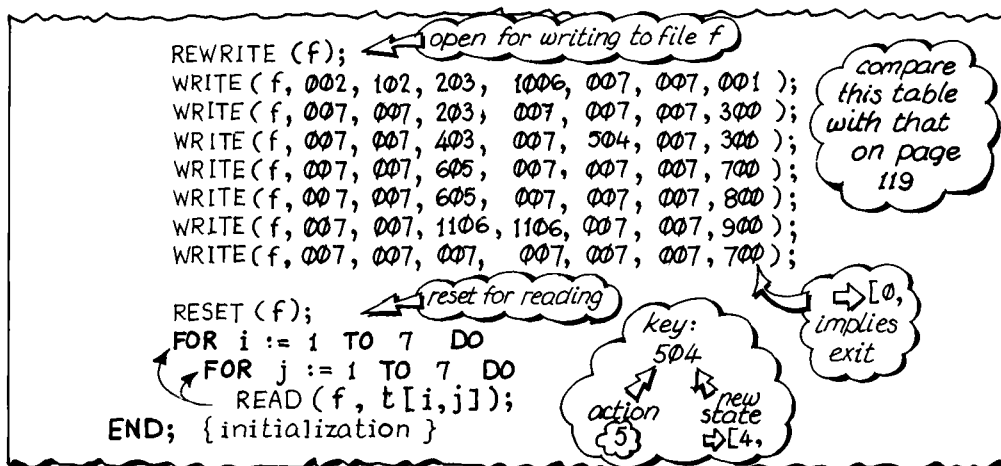 REWRITE (f);
open for writing to file f
WRITE( f, 002, 102, 203, 1006, 007, 007, 001 );
WRITE( f, 007, 007, 203, 007, 007, 007, 300 );
WRITE( f, 007, 007, 403, 007, 504, 007, 300 );
WRITE( f, 007, 007, 605, 007, 007, 007, 700 );
WRITE( f, 007, 007, 605, 007, 007, 007, 800 );
WRITE( f, 007, 007, 1106, 1106, 007, 007, 900 );
WRITE( f, 007, 007, 007, 007, 007, 007, 700 );
compare
this table
with that
on page
119
RESET (f);
reset for reading
FOR i := 1 TO 7 DO
FOR j := 1 TO 7 DO
READ (f, t[i,j]);
END; {initialization }
key:
504
action
5
new
state
⇨[4,
⇨[0,
implies
exit